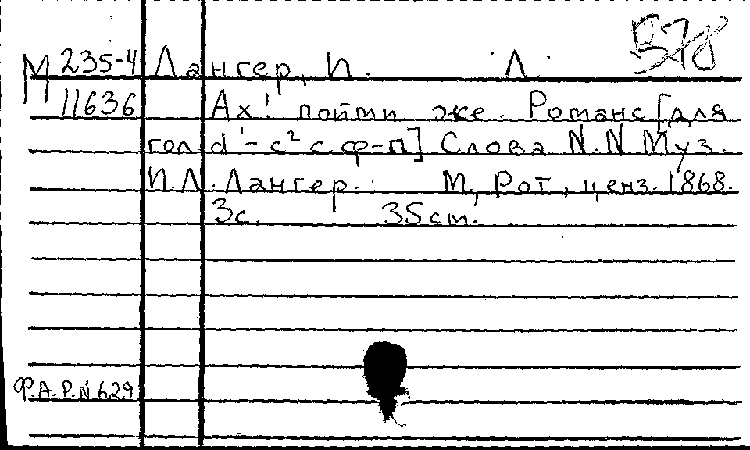 578
М 235-4 Лангер, И. Л.
11636 Ах! пойми же. Романс [для
гол. d¹-c² с ф-п] Слова N.N Муз.
И Л. Лангер. М, Рот, ценз. 1868.
3с. 35 cm.
Ф.А.Р.N 629